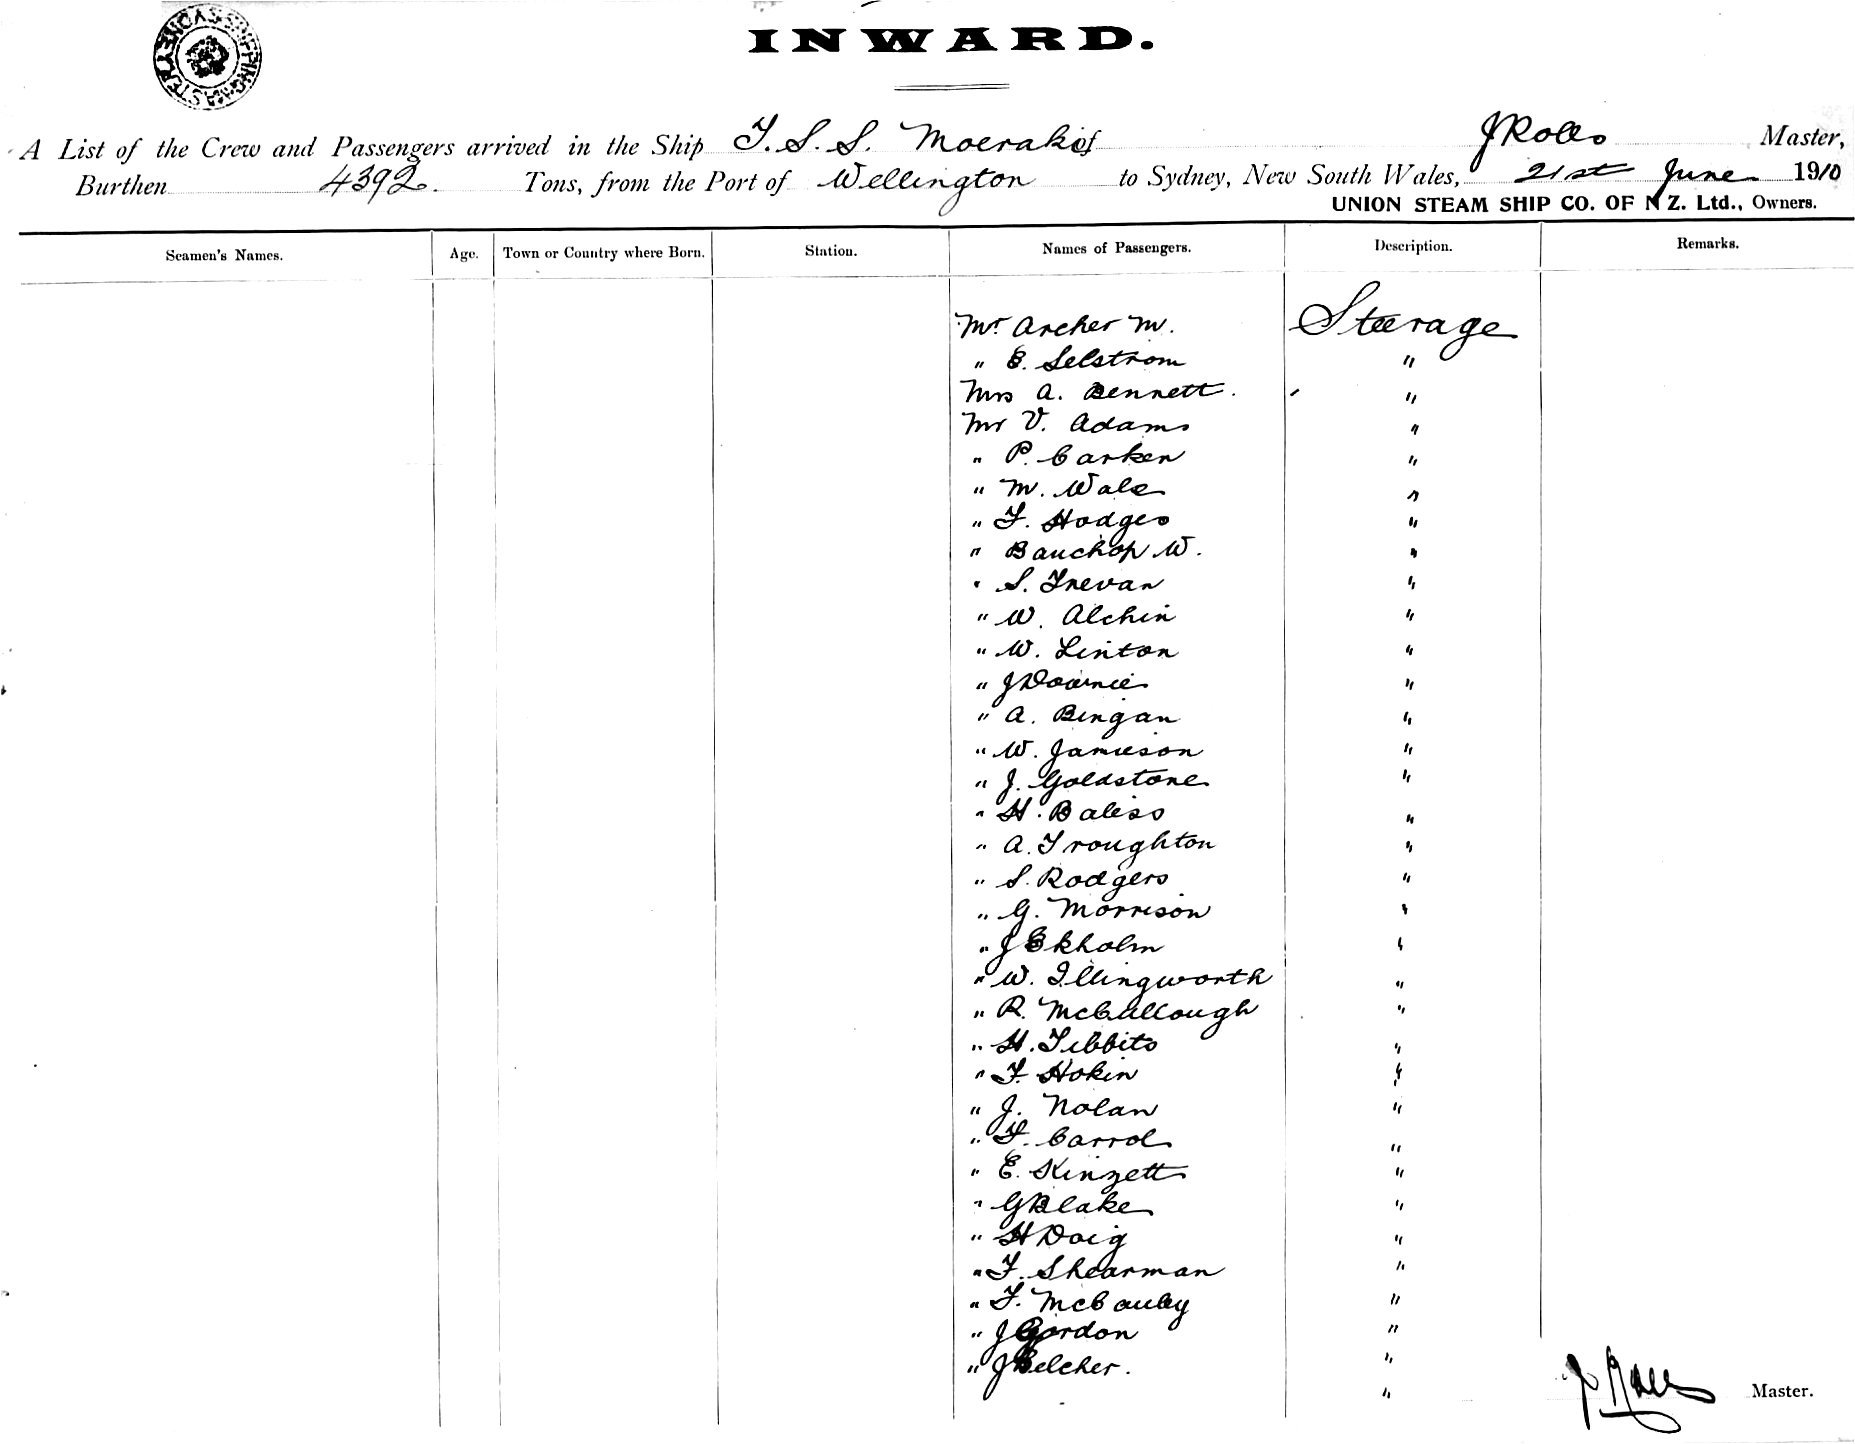 SHIPPING MASTER SYDNEY
INWARD.
A List of the Crew and Passengers arrived in the Ship T. S. S. Moeraki of J Rolls Master,
Burthen 4392. Tons, from the Port of Wellington to Sydney, New South Wales, 21st June 1910
UNION STEAM SHIP CO. OF N Z. Ltd., Owners.
Seamen's Names. Age. Town or Country where Born. Station. Names of Passengers. Description. Remarks.
Mr Archer M. Steerage
" E. Selstrom "
Mrs A. Bennett. "
Mr V. Adams "
" P. Carken "
" M. Wale "
" F. Hodges "
" Bauchop W. "
" S. Trevan "
" W. Alchin "
" W. Linton "
" J Downie "
" A. Bingan "
" W. Jamieson "
" J. Goldstone "
" H. Baliss "
" A. Troughton "
" S. Rodgers "
" G. Morrison "
" J Ekholm "
" W. Illingworth "
" R. McCullough "
" H. Tibbits "
" F. Hokin "
" J. Nolan "
" F. Carrol "
" E. Kinzett "
" G Blake "
" H Doig "
" F. Shearman "
" F. McCauley "
" J Gordon "
" J Belcher. "
"
J Rolls Master.